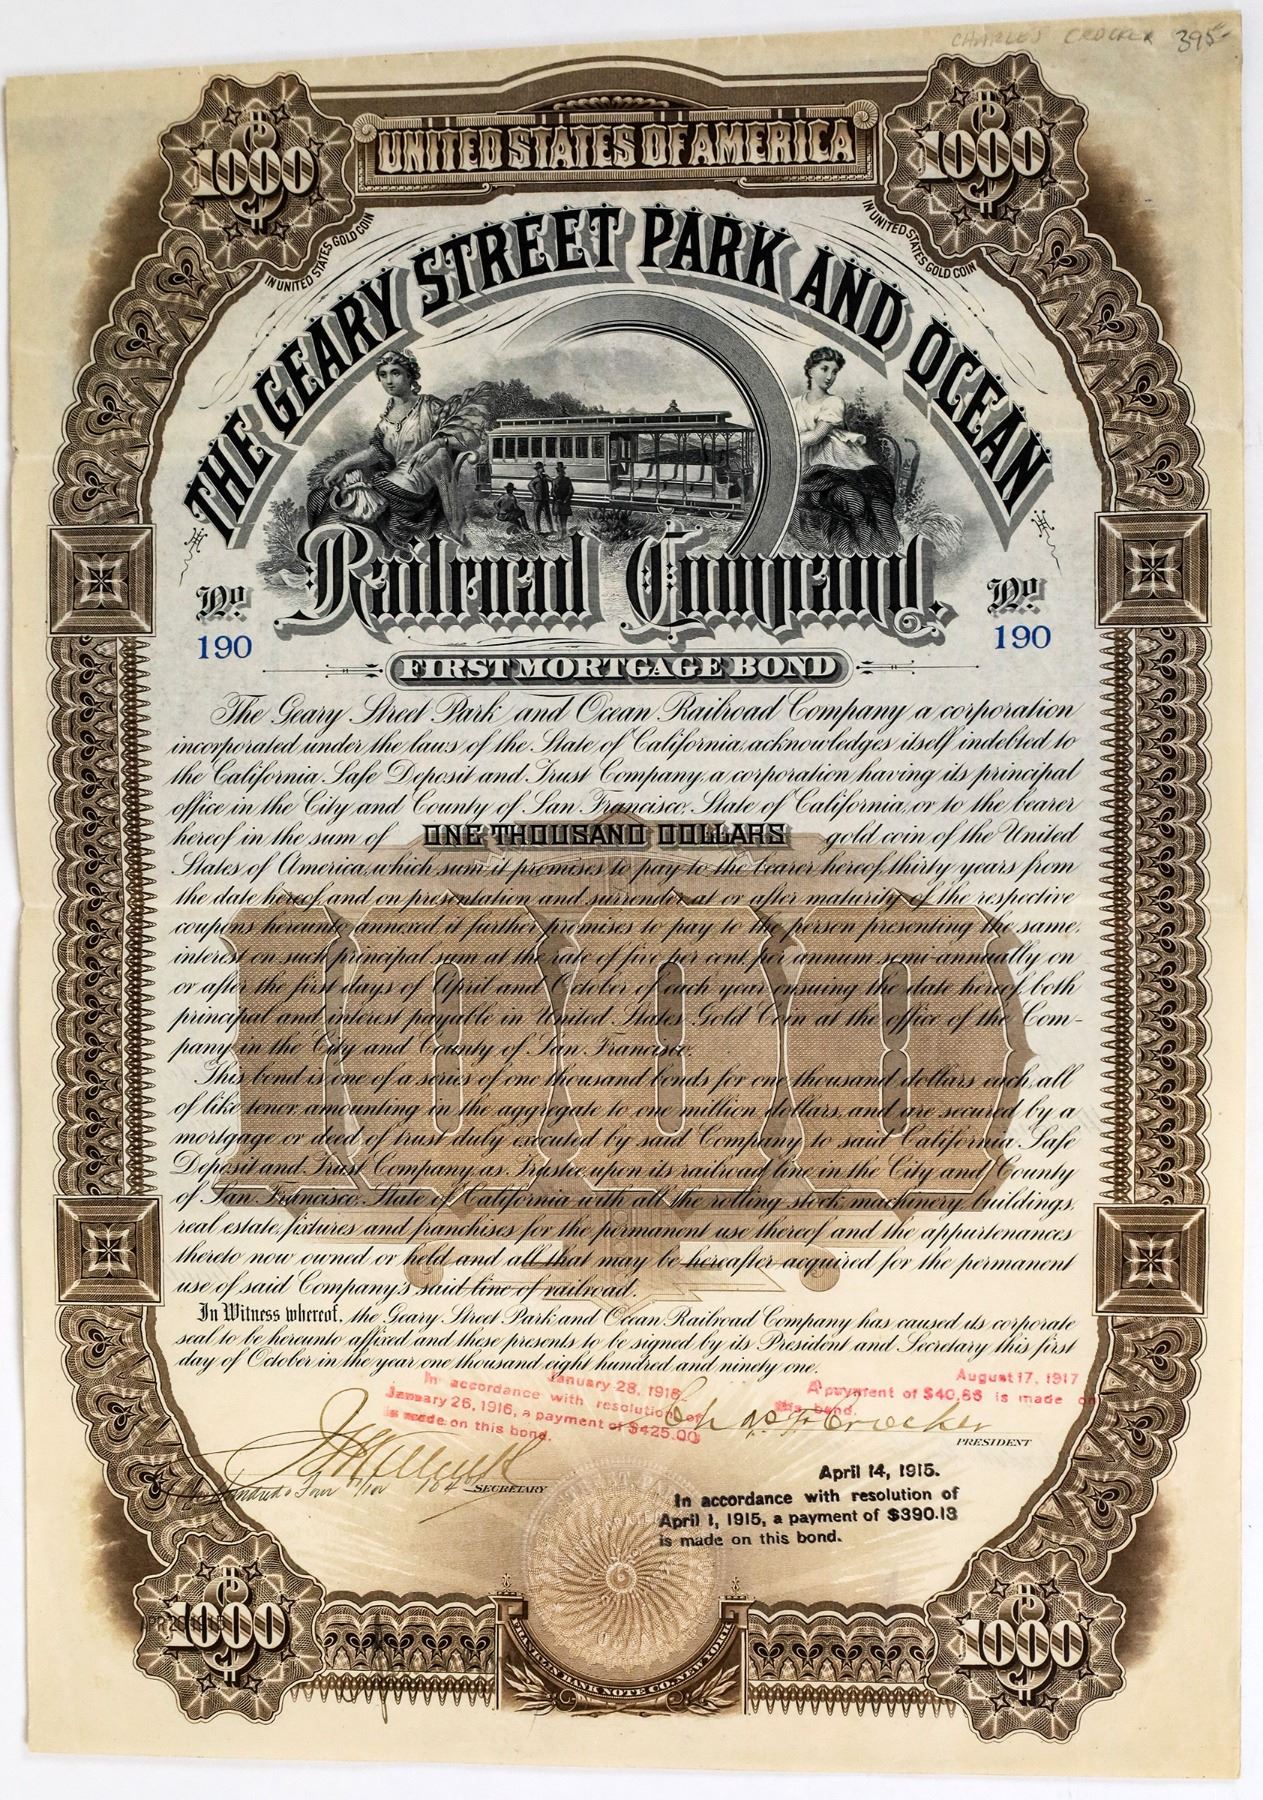 CHARLES CROCKER 395-
$1000
UNITED STATES OF AMERICA
$1000
IN UNITED STATES GOLD COIN
IN UNITED STATES GOLD COIN
THE GEARY STREET PARK AND OCEAN
Railroad Company.
No 190
No 190
FIRST MORTGAGE BOND
The Geary Street Park and Ocean Railroad Company a corporation
incorporated under the laws of the State of California, acknowledges itself indebted to
the California Safe Deposit and Trust Company, a corporation having its principal
office in the City and County of San Francisco, State of California, or to the bearer
hereof in the sum of ONE THOUSAND DOLLARS gold coin of the United
States of America, which sum it promises to pay to the bearer hereof, thirty years from
the date hereof, and on presentation and surrender at or after maturity of the respective
coupons hereunto annexed it further promises to pay to the person presenting the same,
interest on such principal sum at the rate of five per cent per annum semi-annually on
or after the first days of April and October of each year ensuing the date hereof, both
principal and interest payable in United States Gold Coin at the office of the Com-
pany in the City and County of San Francisco.
This bond is one of a series of one thousand bonds for one thousand dollars each, all
of like tenor, amounting in the aggregate to one million dollars, and are secured by a
mortgage or deed of trust duly executed by said Company to said California Safe
Deposit and Trust Company, as Trustee, upon its railroad line in the City and County
of San Francisco, State of California with all the rolling stock, machinery, buildings,
real estate, fixtures and franchises for the permanent use thereof and the appurtenances
thereto now owned or held and all that may be hereafter acquired for the permanent
use of said Company's said line of railroad.
1000
In Witness whereof, the Geary Street Park and Ocean Railroad Company has caused its corporate
seal to be hereunto affixed and these presents to be signed by its President and Secretary this first
day of October in the year one thousand eight hundred and ninety one.
January 28, 1916
In accordance with resolution of
January 26, 1916, a payment of $425.00
is made on this bond.
August 17, 1917
A payment of $40.66 is made on
this bond.
Chas F Crocker
PRESIDENT
SECRETARY
April 14, 1915.
In accordance with resolution of
April 1, 1915, a payment of $390.13
is made on this bond.
$1000
$1000
FRANKLIN BANK NOTE CO. NEW YORK